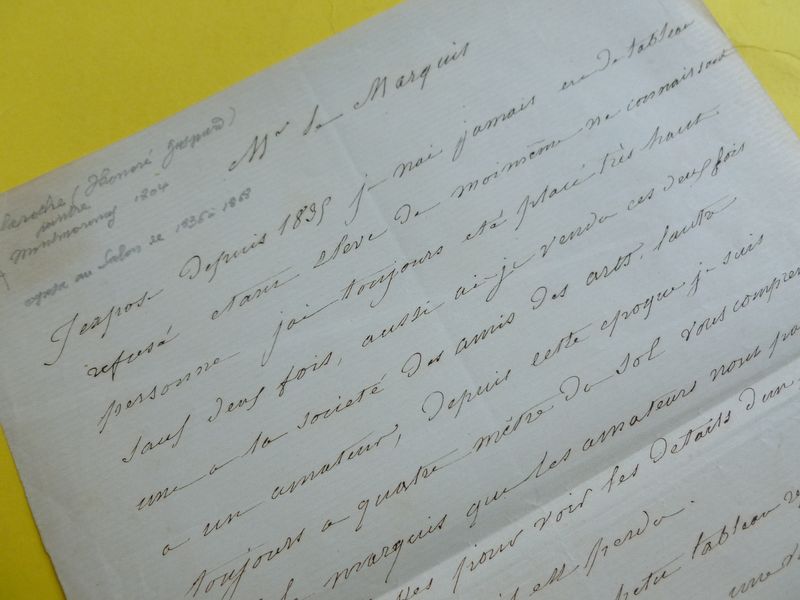 Mr le Marquis
laroche (Honoré Gaspard)
peintre
Montmorency 1804
expose au Salon de 1835 à 1868
J'expose depuis 1835 je nai jamais eu de tableau
refusé etant eleve de moimême ne connaissant
personne jai toujours eté placé très haut
sauf deux fois, aussi ai-je vendu ces deux fois
une a la societé des amis des arts, lautre
a un amateur, depuis cette epoque je suis
toujours a quatre mètre du sol vous compren
marquis que les amateurs nont pa
pour voir les details dun
est perdu.
petit tableau re
une